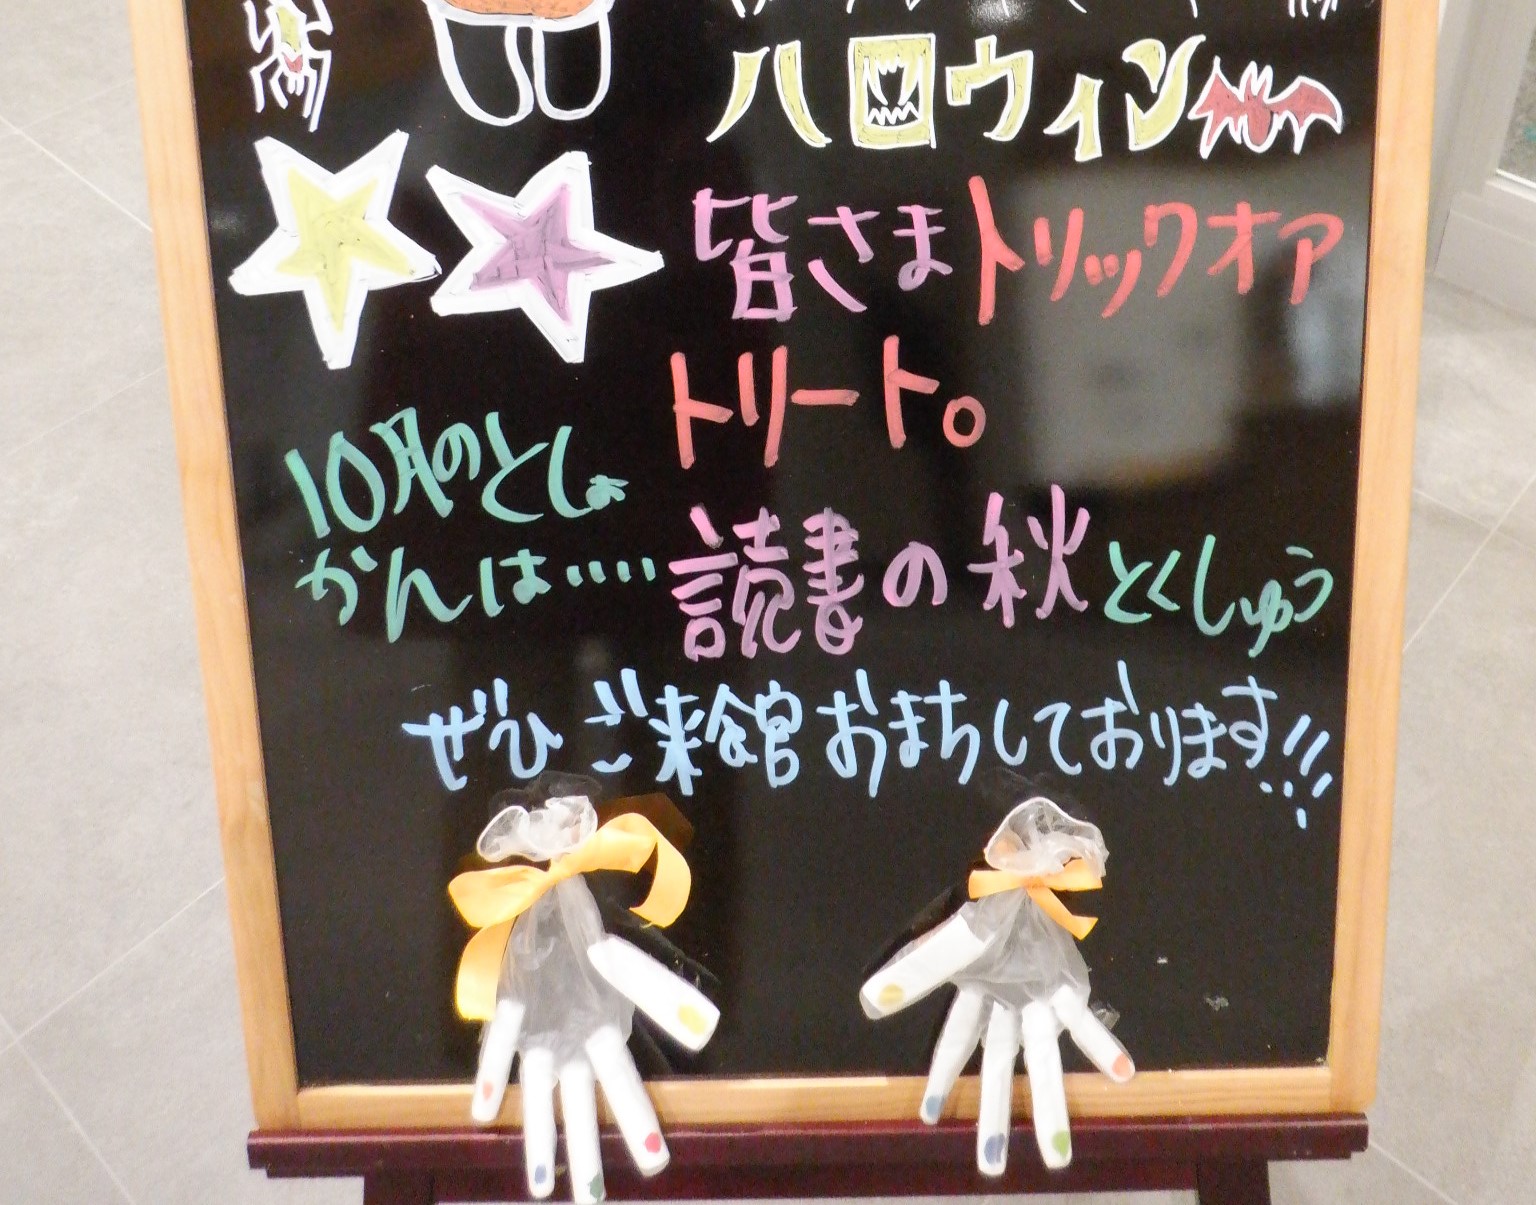 ハロウィン
皆さまトリックオア
トリート。
10月のとしょ
かんは‥‥読書の秋とくしゅう
ぜひご来館おまちしております!!!